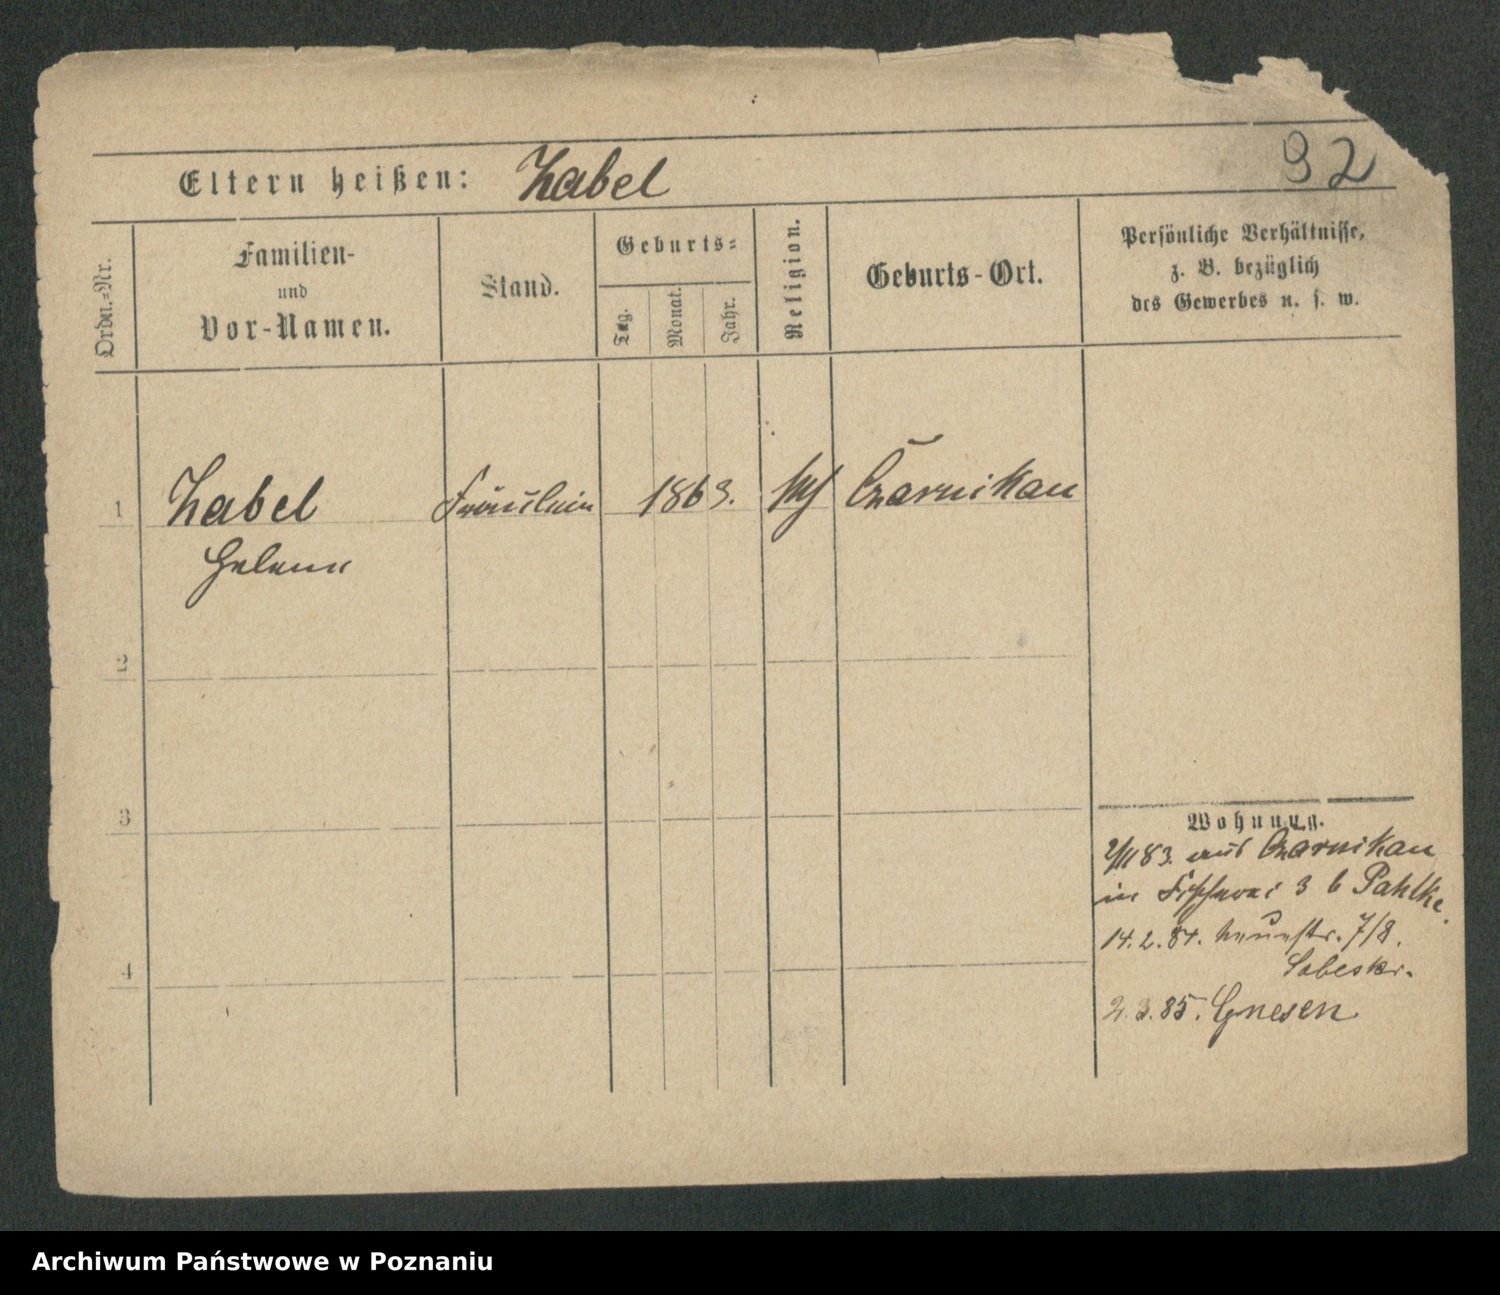 92
Eltern heißen: Zabel
Ordn.=Nr.
Familien-
und
Vor-Namen.
Stand.
Geburts=
Tag.
Monat.
Jahr.
Religion.
Geburts-Ort.
Persönliche Verhältnisse,
z. B. bezüglich
des Gewerbes u. s. w.
1 Zabel Fräulein 1863. Czarnikau
Helene
2
3
4
Wohnung.
83. aus Czarnikau
in Fischerei 3 b Pahlke.
14.2.84. Neuestr. 7/8.
2.3.85. Gnesen
Archiwum Państwowe w Poznaniu